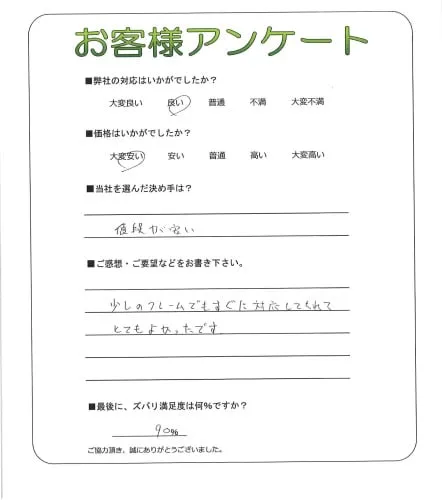 お客様アンケート
■弊社の対応はいかがでしたか？
大変良い 良い 普通 不満 大変不満
■価格はいかがでしたか？
大変安い 安い 普通 高い 大変高い
■当社を選んだ決め手は？
値段が安い
■ご感想・ご要望などをお書き下さい。
少しのクレームでもすぐに対応してくれて
とてもよかったです
■最後に、ズバリ満足度は何%ですか？
90%
ご協力頂き、誠にありがとうございました。